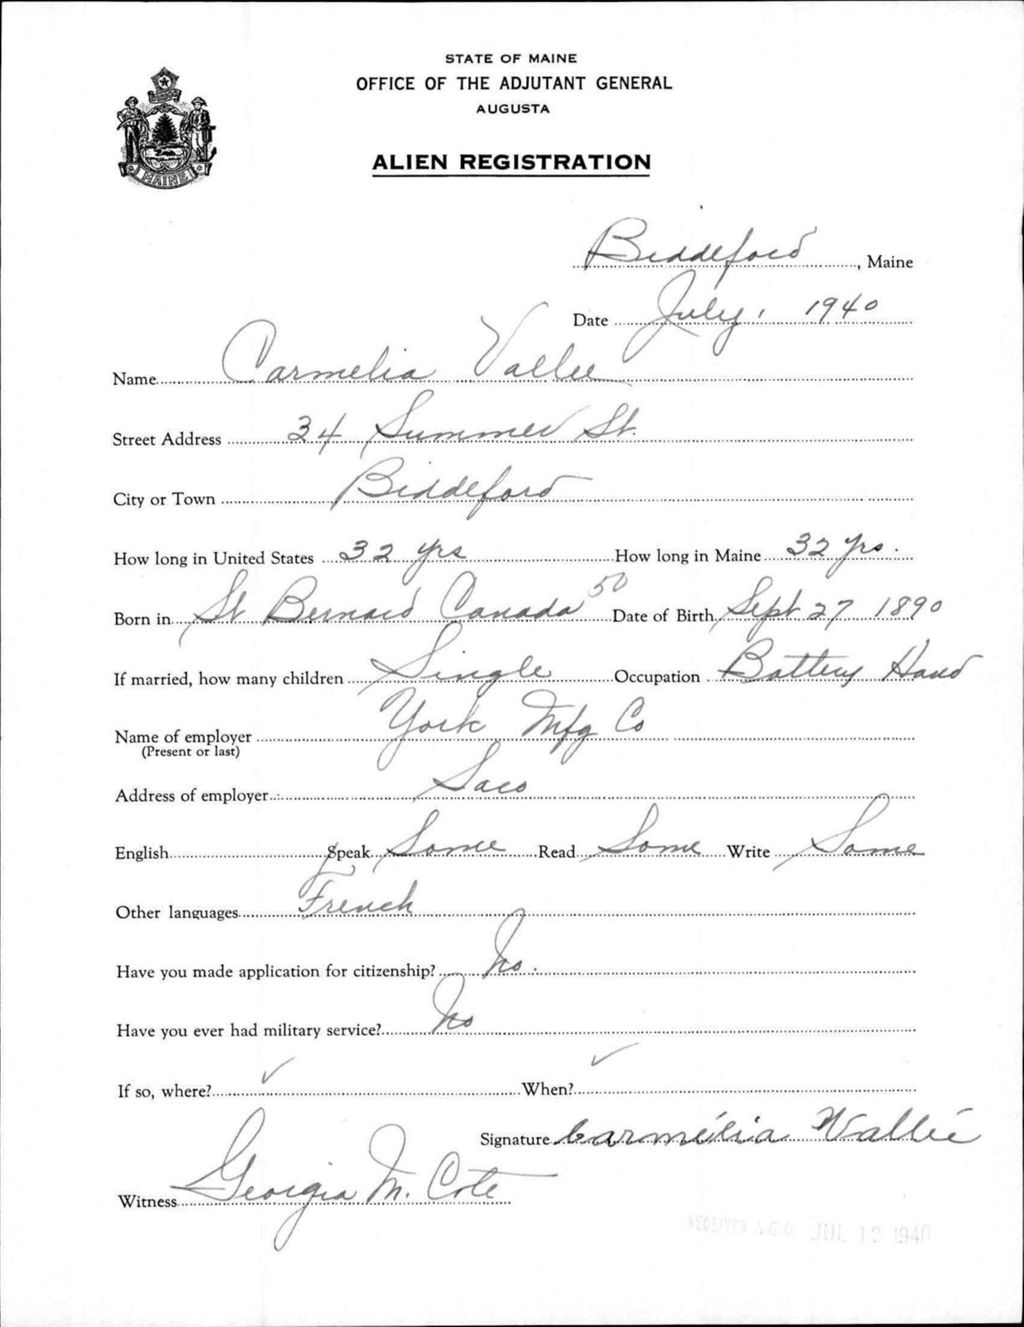 STATE OF MAINE
OFFICE OF THE ADJUTANT GENERAL
AUGUSTA
MAINE
ALIEN REGISTRATION
Biddeford, Maine
Date July, 1940
Name Carmelia Vallee
Street Address 34 Summer St.
City or Town Biddeford
How long in United States 32 yrs How long in Maine 32 yrs.
Born in St Bernard Canada 50 Date of Birth Sept 27 1890
If married, how many children Single Occupation Battery Hand
Name of employer York Mfg Co
(Present or last)
Address of employer Saco
English Speak Some Read Some Write Some
Other languages French
Have you made application for citizenship? No.
Have you ever had military service? No
If so, where? ✓ When? ✓
Signature Carmélia Vallée
Witness Georgia M. Cote
RECEIVED A.G.O. JUL 12 1940